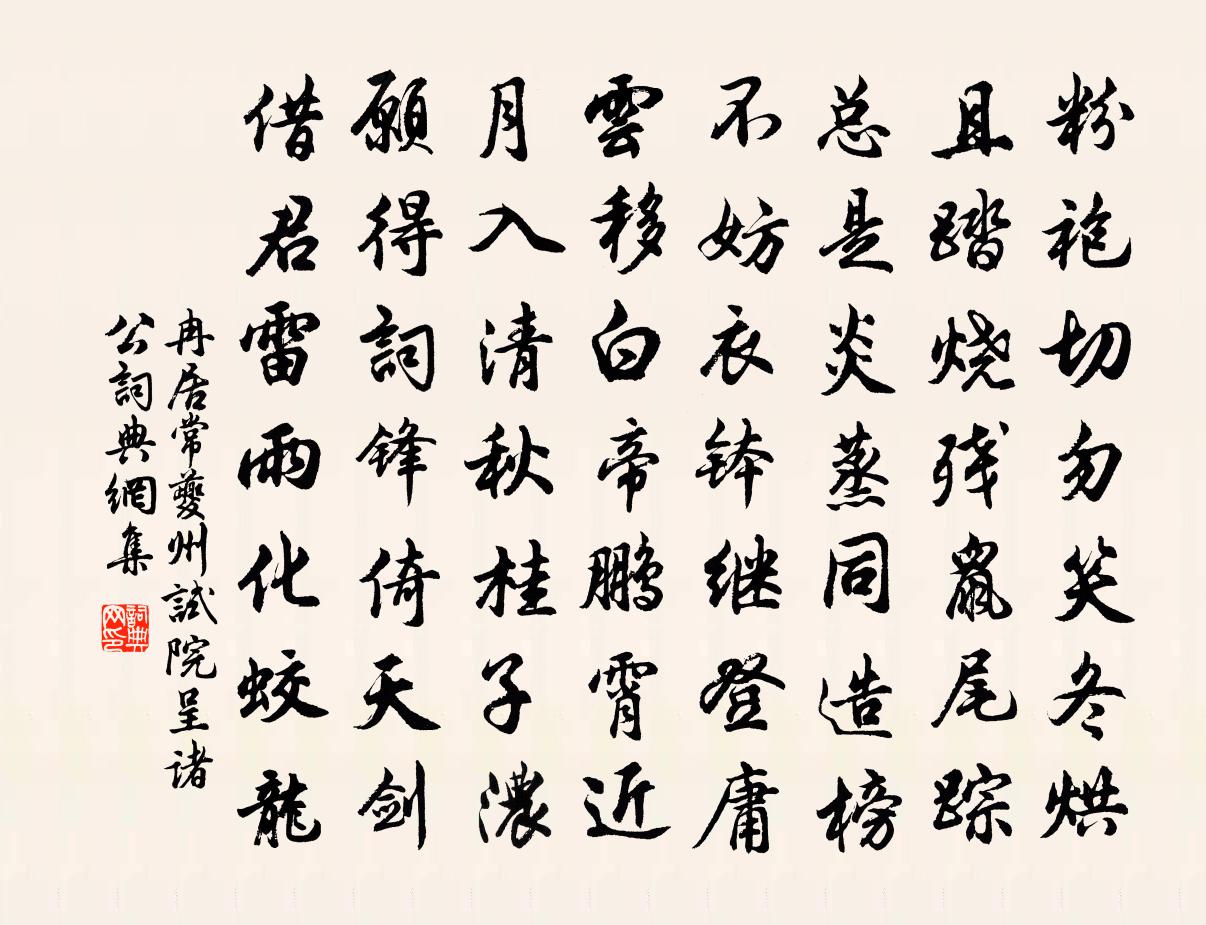 粉袍切勿笑冬烘
且踏烧残鼠尾踪
总是炎蒸同造榜
不妨衣钵继登庸
雲移白帝鹏霄近
月入清秋桂子濃
願得詞锋倚天剑
借君雷雨化蛟龍
冉居常夔州試院呈诸
公詞典網集
詞典网印